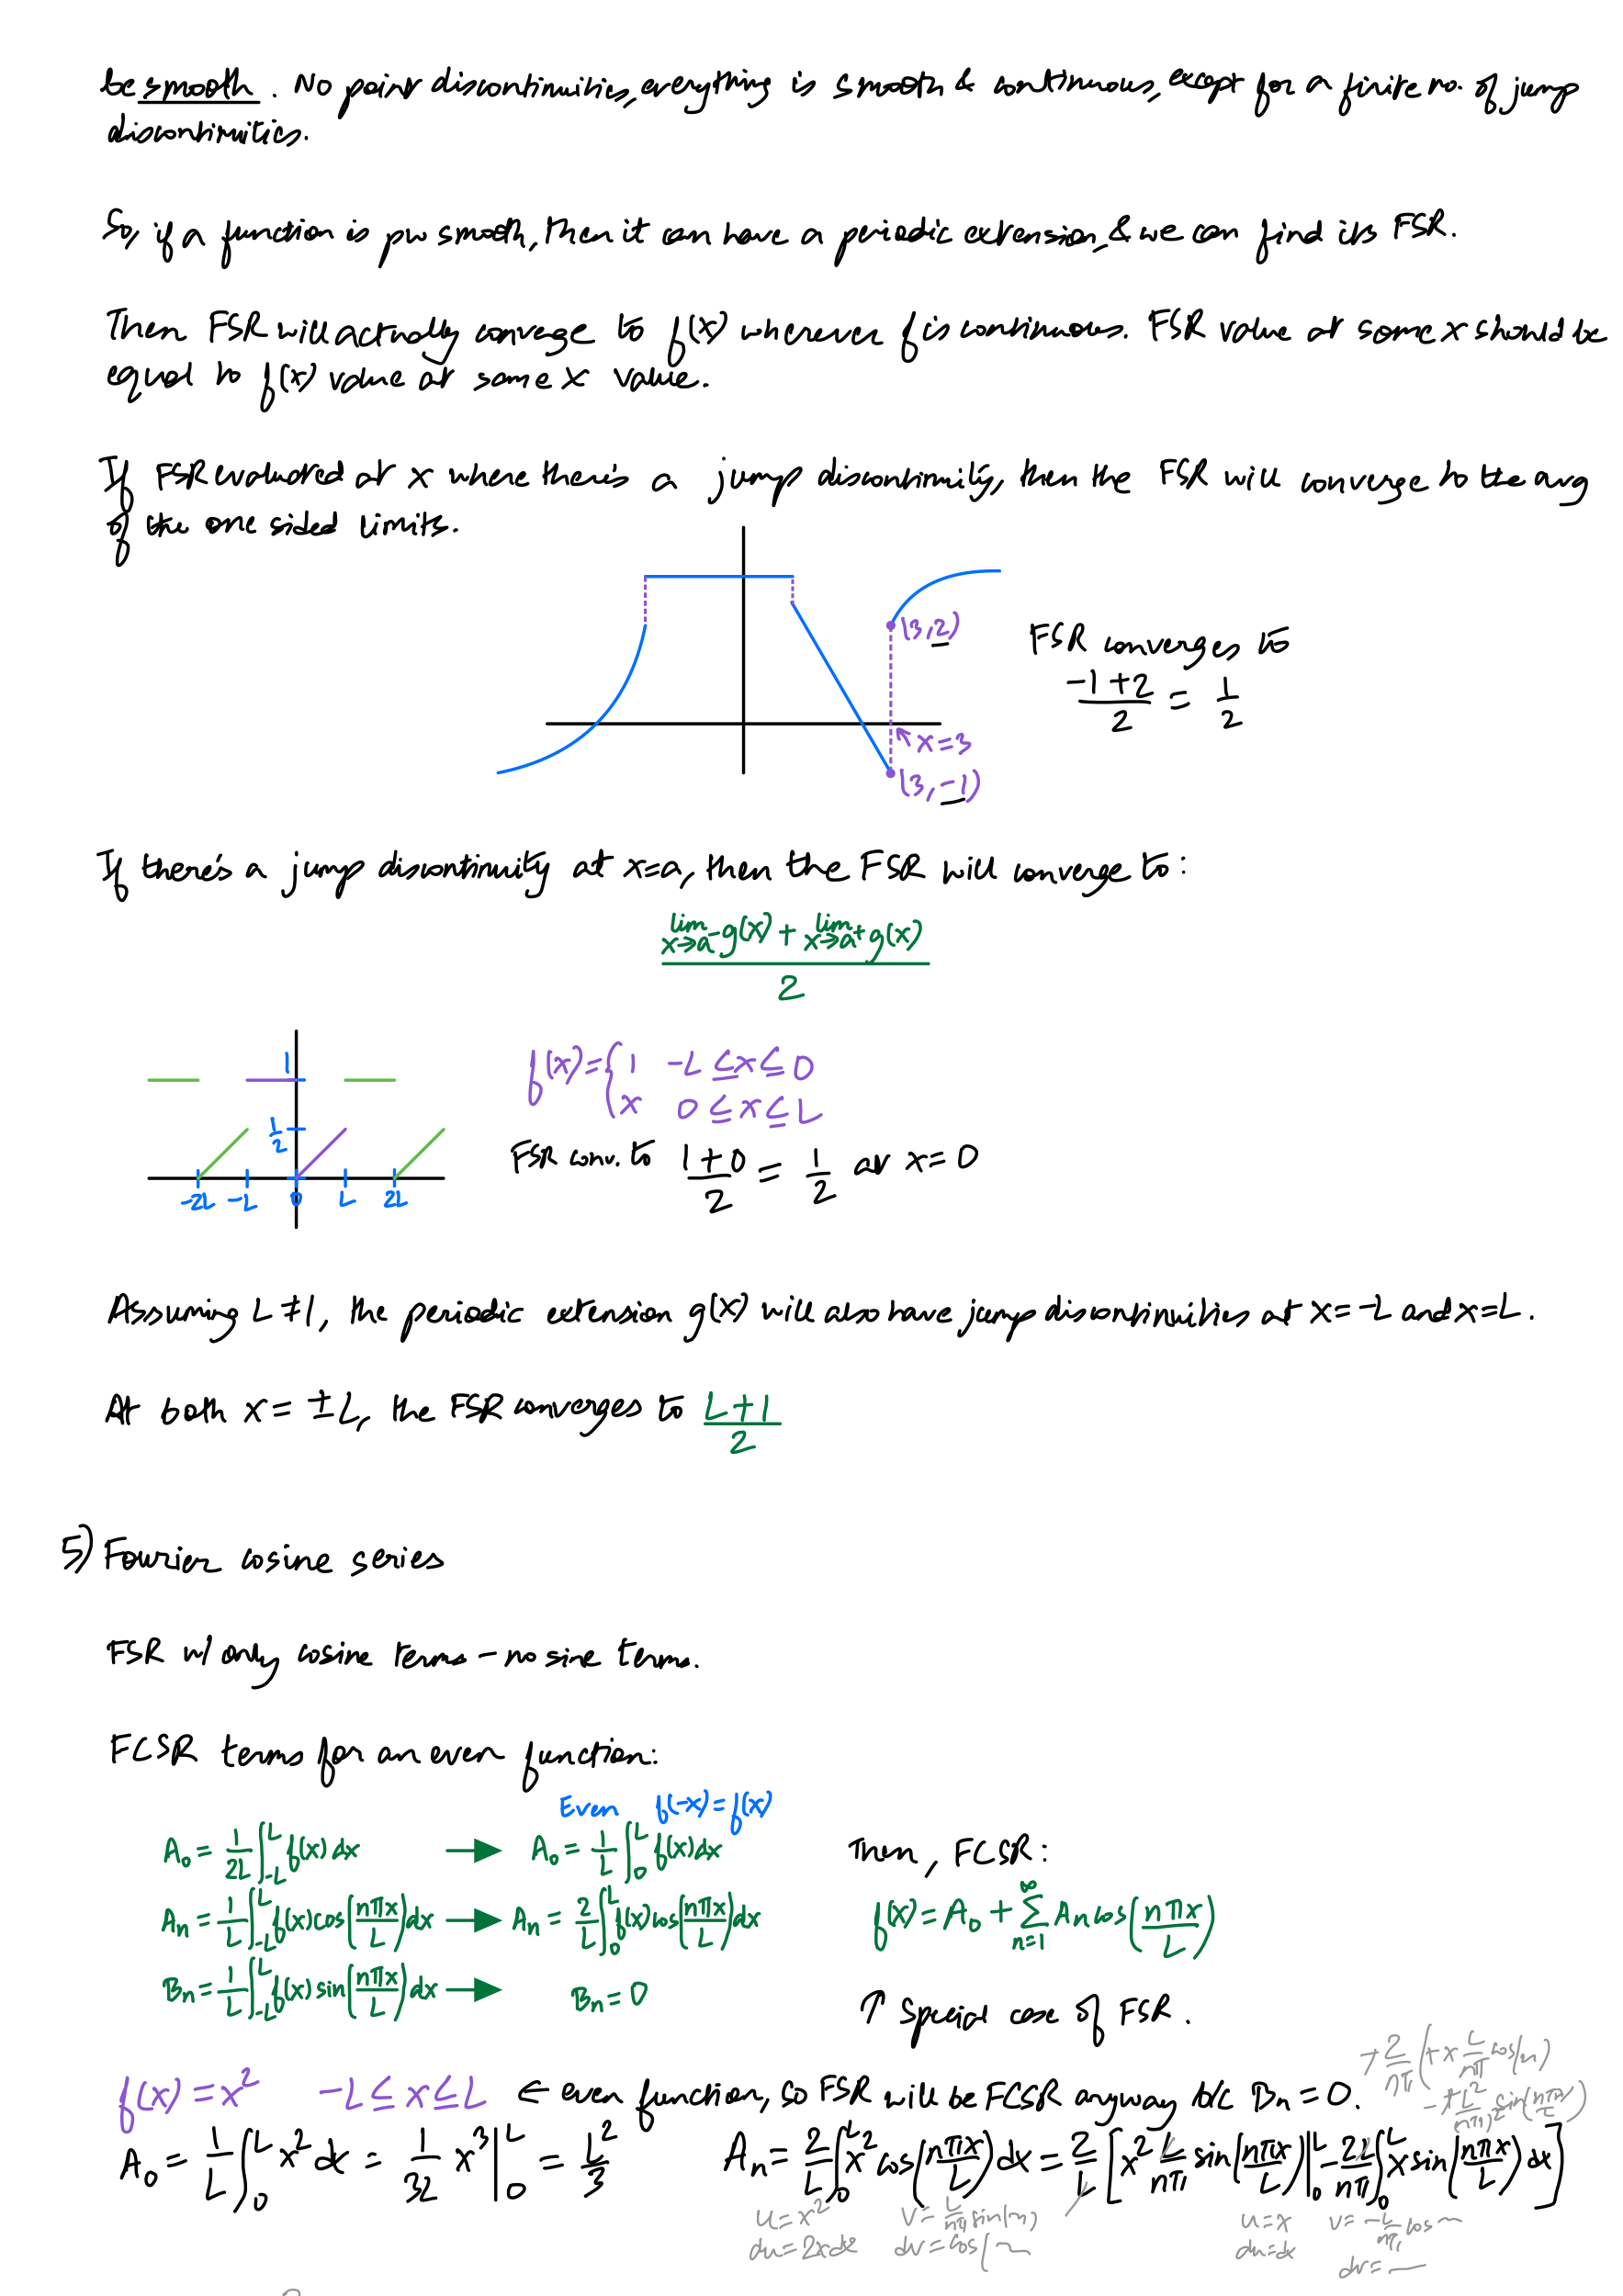 be smooth. No point discontinuities, everything is smooth & continuous, except for a finite no. of jump
discontinuities.
So, if a function is pw smooth, then it can have a periodic extension, & we can find its FSR.
Then FSR will actually converge to f(x) wherever f is continuous. FSR value at some x should be
equal to f(x) value at same x value.
If FSR evaluated at x where there's a jump discontinuity, then the FSR will converge to the avg
of the one sided limits.
(3,2)
FSR converges to
(-1+2)/2 = 1/2
x=3
(3,-1)
If there's a jump discontinuity at x=a, then the FSR will converge to:
(lim x→a⁻ g(x) + lim x→a⁺ g(x))/2
1
1/2
-2L -L 0 L 2L
f(x)={1 -L≤x≤0
x 0≤x≤L
FSR conv. to (1+0)/2 = 1/2 at x=0
Assuming L≠1, the periodic extension g(x) will also have jump discontinuities at x=-L and x=L.
At both x=±L, the FSR converges to (L+1)/2
5) Fourier cosine series
FSR w/ only cosine terms - no sine terms.
FCSR terms for an even function:
Even f(-x)=f(x)
A₀ = 1/(2L) ∫_{-L}^{L} f(x) dx → A₀ = 1/L ∫_0^L f(x)dx
Aₙ = 1/L ∫_{-L}^{L} f(x)cos(nπx/L)dx → Aₙ = 2/L ∫_0^L f(x)cos(nπx/L)dx
Bₙ = 1/L ∫_{-L}^{L} f(x) sin(nπx/L)dx → Bₙ = 0
Then, FCSR:
f(x) = A₀ + Σ_{n=1}^{∞} Aₙ cos(nπx/L)
↑ Special case of FSR.
f(x) = x² -L≤x≤L ← even function, so FSR will be FCSR anyway b/c Bₙ = 0.
A₀ = 1/L ∫_0^L x² dx = 1/(3L) x³ |_0^L = L²/3
Aₙ = 2/L ∫_0^L x² cos(nπx/L)dx = 2/L [x² L/(nπ) sin(nπx/L)|_0^L - 2L/(nπ) ∫_0^L x sin(nπx/L) dx]
u=x² v= L/(nπ) sin(~)
du=2xdx dv=cos(~
u=x v= -L/(nπ) cos~
du=dx dv= —